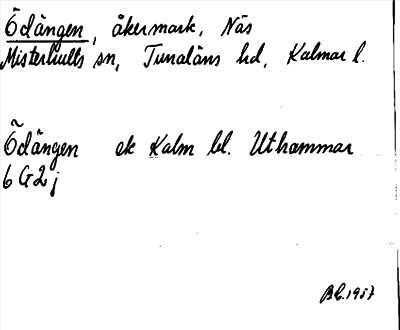 Ödängen, åkermark, Näs
Misterhults sn, Tunaläns hd, Kalmar l.
Ödängen ek Kalm bl. Uthammar
6 G 2 j
BL. 1957